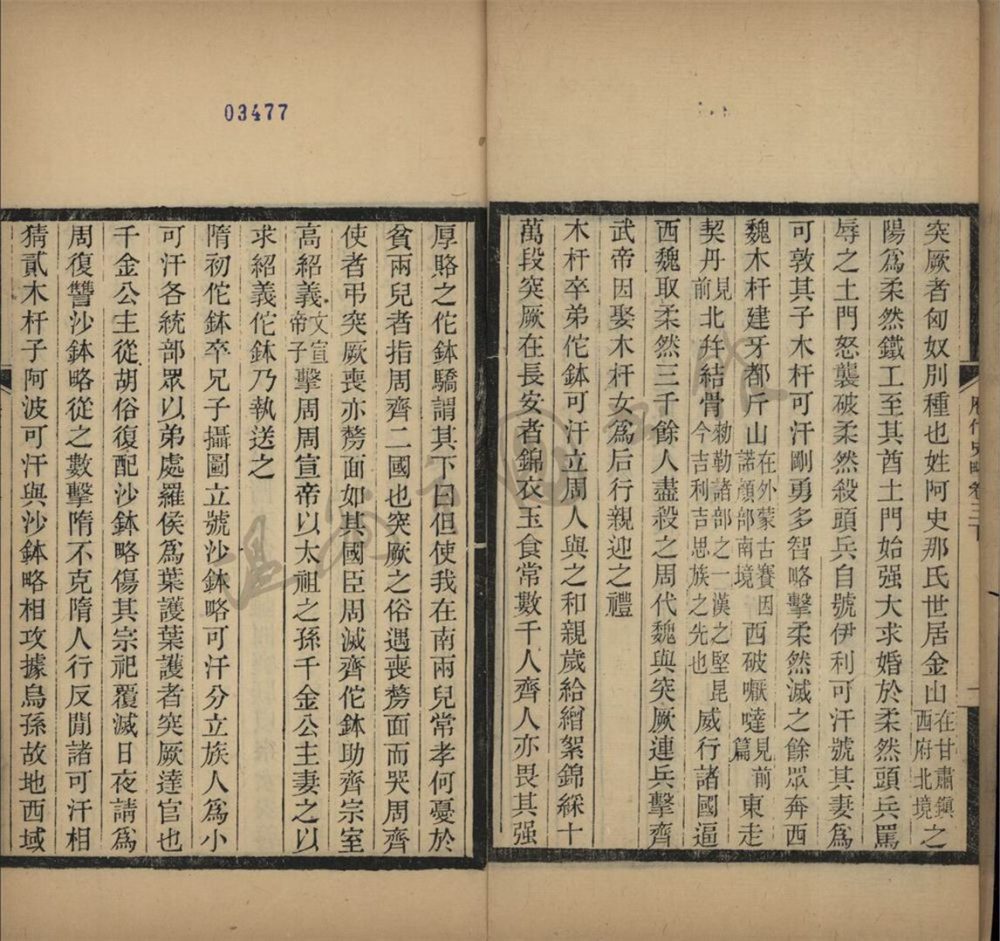 突厥者匈奴別種也姓阿史那氏世居金山在甘肅鎭西府北境之
陽爲柔然鐵工至其酋土門始强大求婚於柔然頭兵罵
辱之土門怒襲破柔然殺頭兵自號伊利可汗號其妻爲
可敦其子木杆可汗剛勇多智略擊柔然滅之餘眾奔西
魏木杆建牙都斤山在外蒙古賽因諾顏部南境西破嚈噠見前篇東走
契丹見前北幷結骨勑勒諸部之一漢之堅昆今吉利吉思族之先也威行諸國逼
西魏取柔然三千餘人盡殺之周代魏與突厥連兵擊齊
武帝因娶木杆女爲后行親迎之禮
木杆卒弟佗鉢可汗立周人與之和親歲給繒絮錦綵十
萬段突厥在長安者錦衣玉食常數千人齊人亦畏其强
厚賂之佗鉢驕謂其下曰但使我在南兩兒常孝何憂於
貧兩兒者指周齊二國也突厥之俗遇喪剺面而哭周齊
使者弔突厥喪亦剺面如其國臣周滅齊佗鉢助齊宗室
高紹義文宣帝子擊周周宣帝以太祖之孫千金公主妻之以
求紹義佗鉢乃執送之
隋初佗鉢卒兄子攝圖立號沙鉢略可汗分立族人爲小
可汗各統部眾以弟處羅侯爲葉護葉護者突厥達官也
千金公主從胡俗復配沙鉢略傷其宗祀覆滅日夜請爲
周復讐沙鉢略從之數擊隋不克隋人行反間諸可汗相
猜貳木杆子阿波可汗與沙鉢略相攻據烏孫故地西域
03477